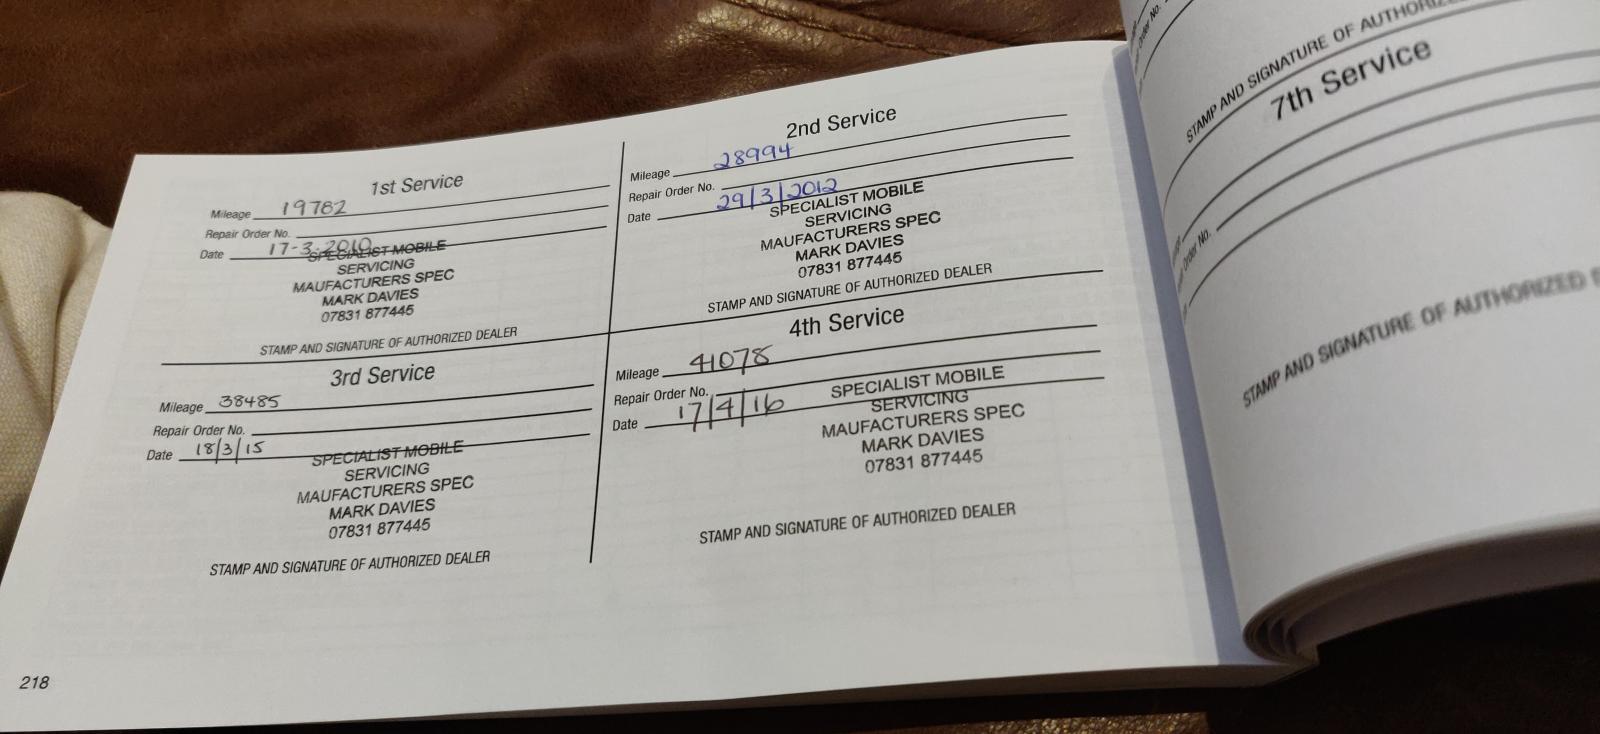 1st Service
Mileage 19782
Repair Order No.
Date 17-3-2010
SPECIALIST MOBILE
SERVICING
MAUFACTURERS SPEC
MARK DAVIES
07831 877445
STAMP AND SIGNATURE OF AUTHORIZED DEALER
2nd Service
Mileage 28994
Repair Order No.
Date 29/3/2012
SPECIALIST MOBILE
SERVICING
MAUFACTURERS SPEC
MARK DAVIES
07831 877445
STAMP AND SIGNATURE OF AUTHORIZED DEALER
3rd Service
Mileage 38485
Repair Order No.
Date 18/3/15
SPECIALIST MOBILE
SERVICING
MAUFACTURERS SPEC
MARK DAVIES
07831 877445
STAMP AND SIGNATURE OF AUTHORIZED DEALER
4th Service
Mileage 41078
Repair Order No.
Date 17/4/16
SPECIALIST MOBILE
SERVICING
MAUFACTURERS SPEC
MARK DAVIES
07831 877445
STAMP AND SIGNATURE OF AUTHORIZED DEALER
218
Order No.
STAMP AND SIGNATURE OF
7th Service
Order No.
STAMP AND SIGNATURE OF AUTHORIZED